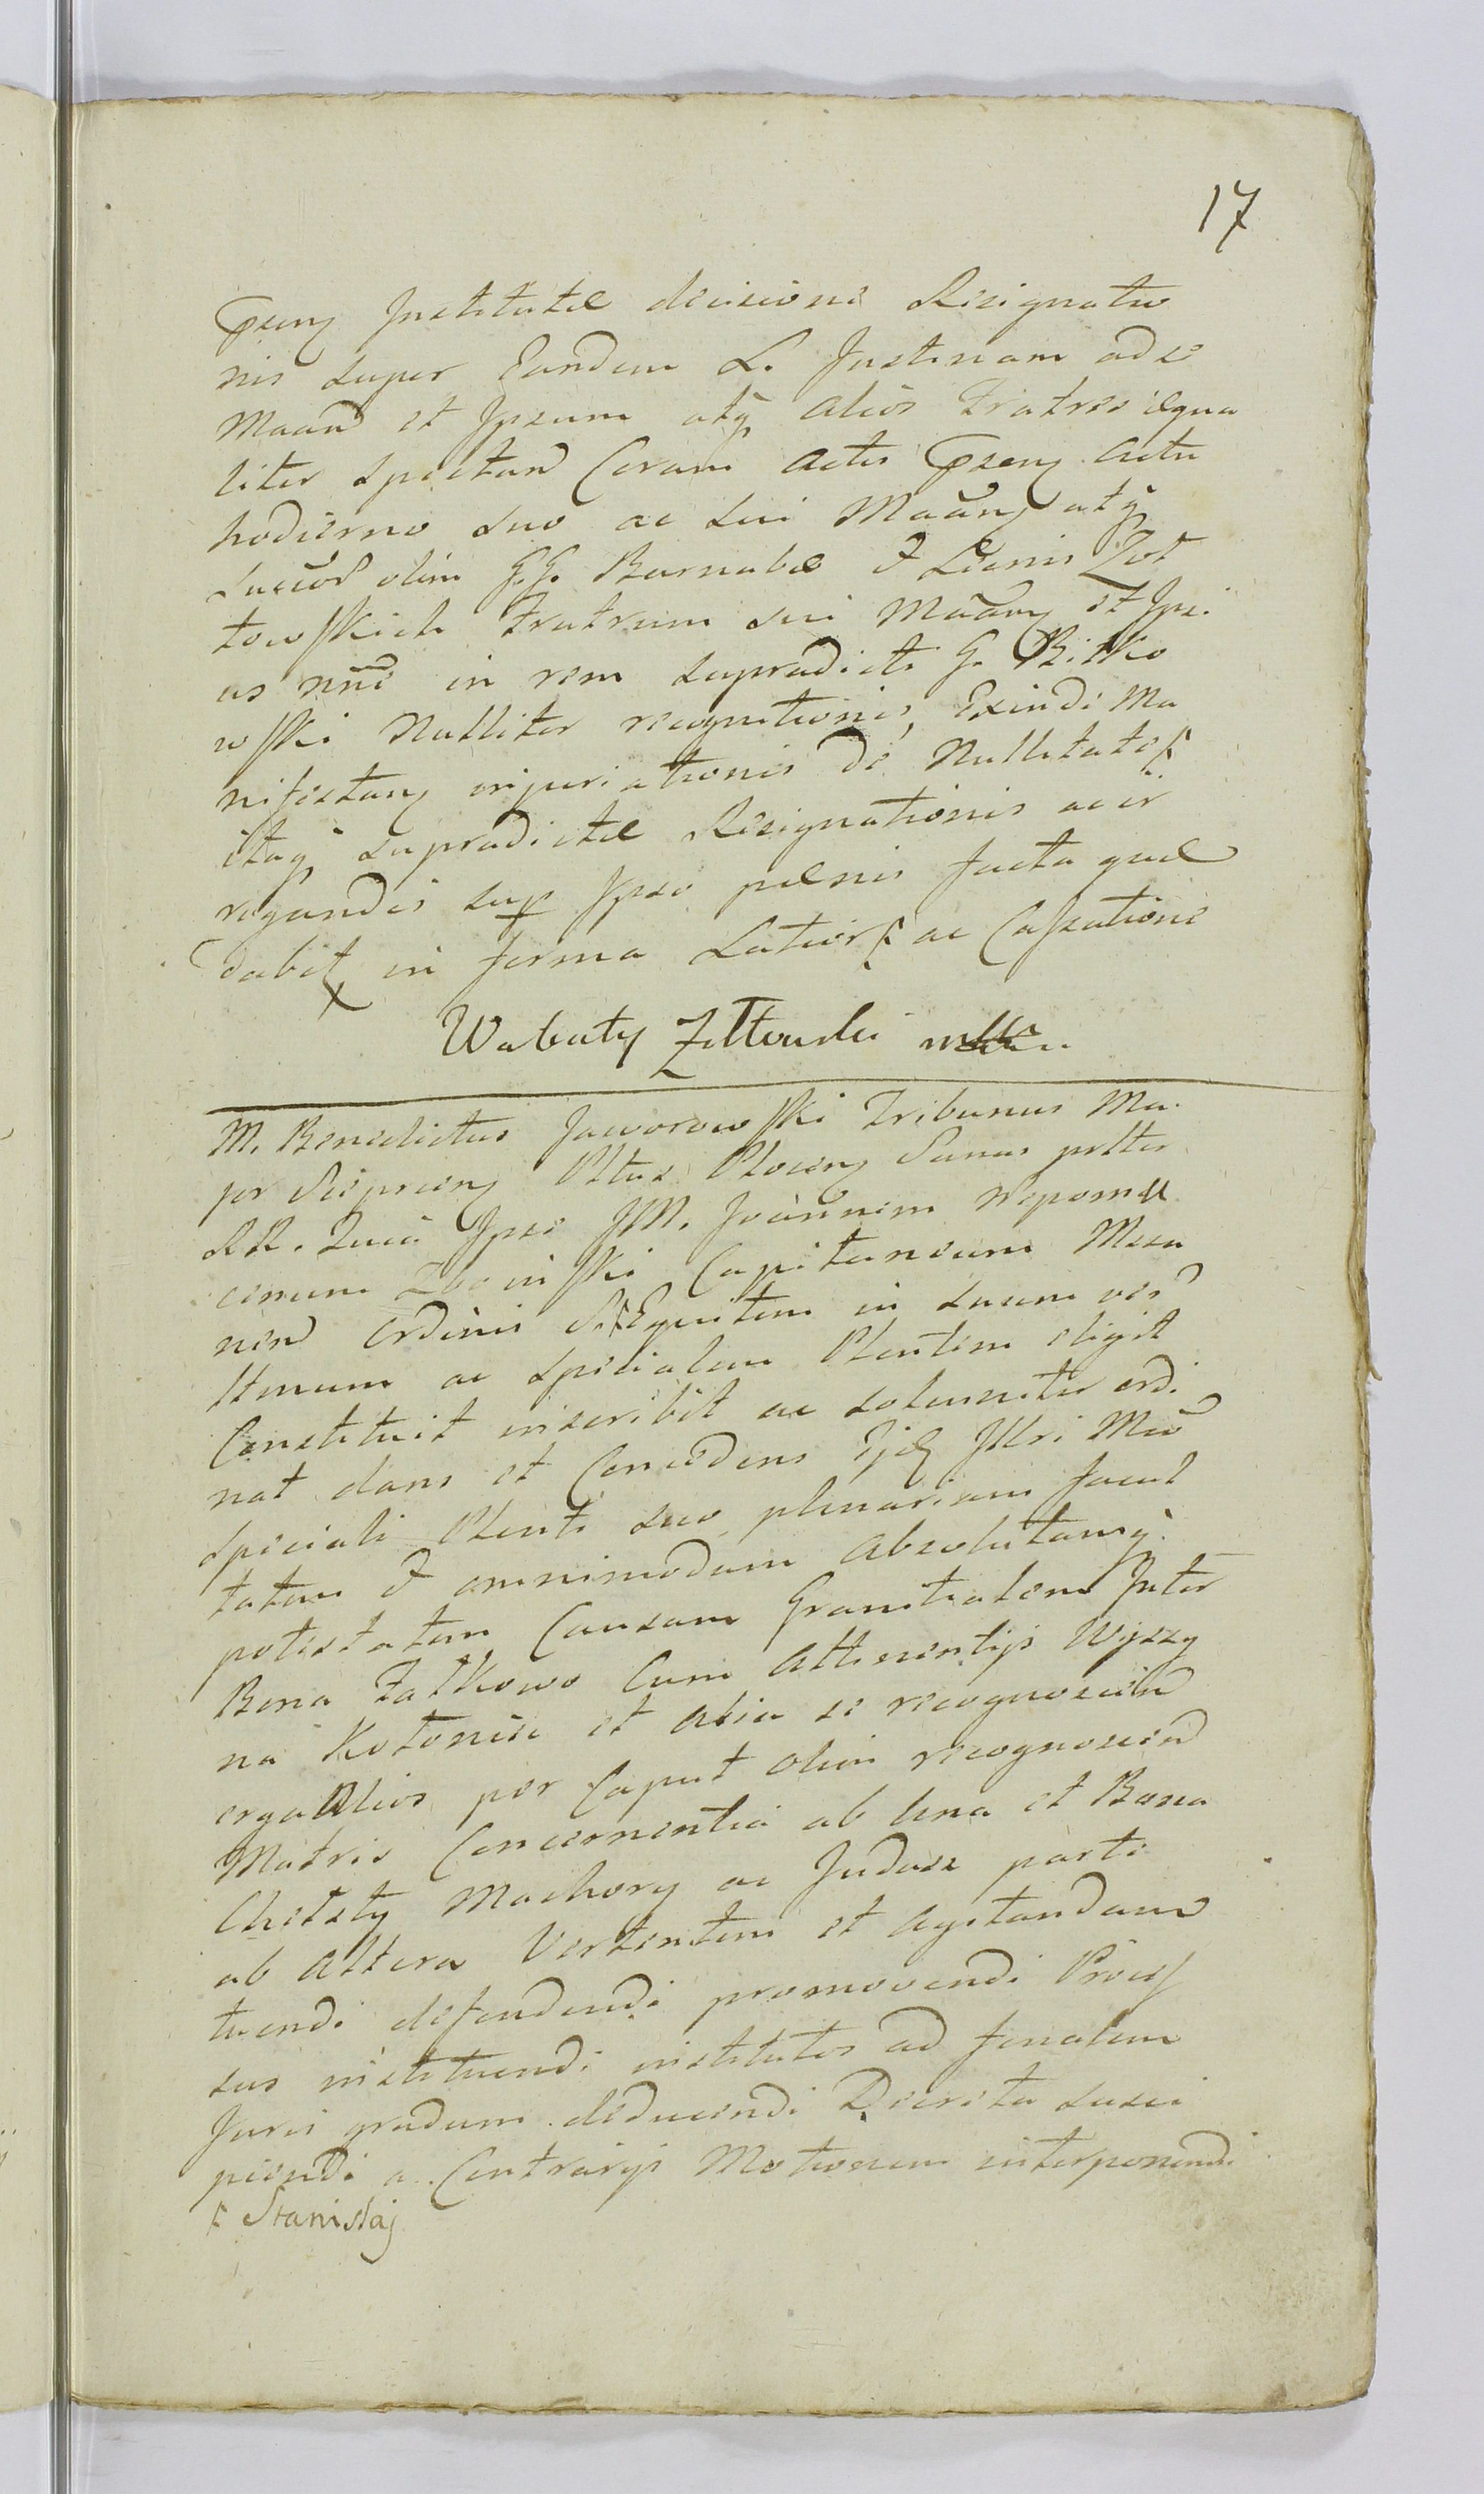 17
Institutae decisione Resignatio
nis super Eandem L. Justinam ad se
Maand et Ipsum atq alios Fratres aequa
liter spectand Coram Actis Actu
hodierno suo ac sui Maanj atq
Succor olim G.G. Barnabae & Zot
towskich Fratrum sui Maanj et Ipsi
us nne in rem supradicti G. Bitko
wski Nulliter recognitionis, Exinde Ma
nifestanj injuriationis de Nullitate
itaq supradictae Resignationis ac ir
rogandis sup Ipso paenis facta quae
dabit in forma Latiori ac Cassatione
Walenty Zołtowski mp
M. Benedictus Jaworowski Tribunus Ma
jor Sieprcenj Pltus Plocenj Sanus pntter
RR. Quia Ipse JM. Joannem Nepomu
cenum Zboinski Capitaneum Mszа
nen Ordinis S. Equitem in suum ver
ltimum ac specialem Plentem eligit
Constituit inscribit ac solenniter ordi
nat dans et Concedens Ejd Illri Mco
speciali Plenti suo plenariam facul
tatem & omnimodam absolutamq
potestatem Causam Graniti​alem Inter
Bona Fałkowo Cum Attinentijs Wyszy
na Kotonice et alia se recognoscen
erga Alios per Caput olim recognoscen
Matris Concernentia ab una et Bona
Chełsty Machory ac Judasz parte
ab altera Vertentem et Agitandam
tuendi defendendi promovendi Proces
sus instituendi institutos ad finalem
Juris gradum deducendi Decreta susci
piendi a Contrarijs Motionem interponendi
Stanislaj